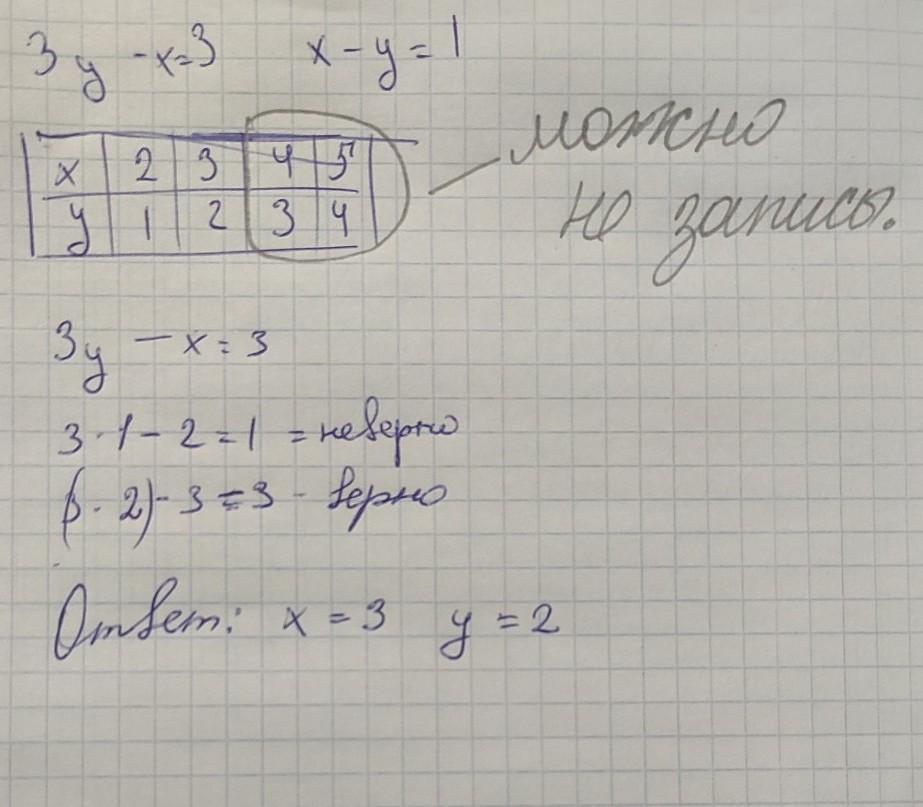 3y - x = 3 x - y = 1
можно
не записы.
x 2 3 4 5
y 1 2 3 4
3y - x = 3
3 · 1 - 2 = 1 = неверно
(3 · 2) - 3 = 3 - верно
Ответ: x = 3 y = 2